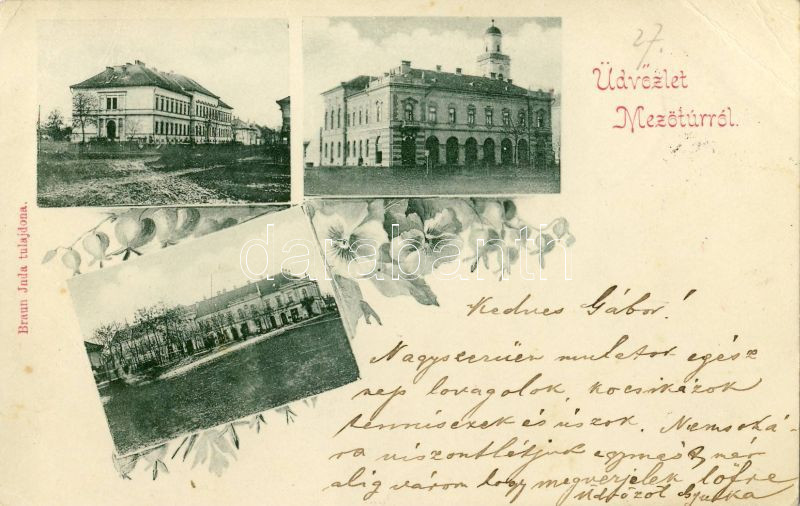 27.
Üdvözlet
Mezőtúrról.
Braun Juda tulajdona.
databanth
Kedves Gábor!
Nagyszerüen mulatok egész
nap lovagolok, kocsikázok
tennisezek és úszok. Nemsoká-
ra viszontlátjuk egymást, már
alig várom hogy megverjelek lőfre
üdvözöl Gyuszka